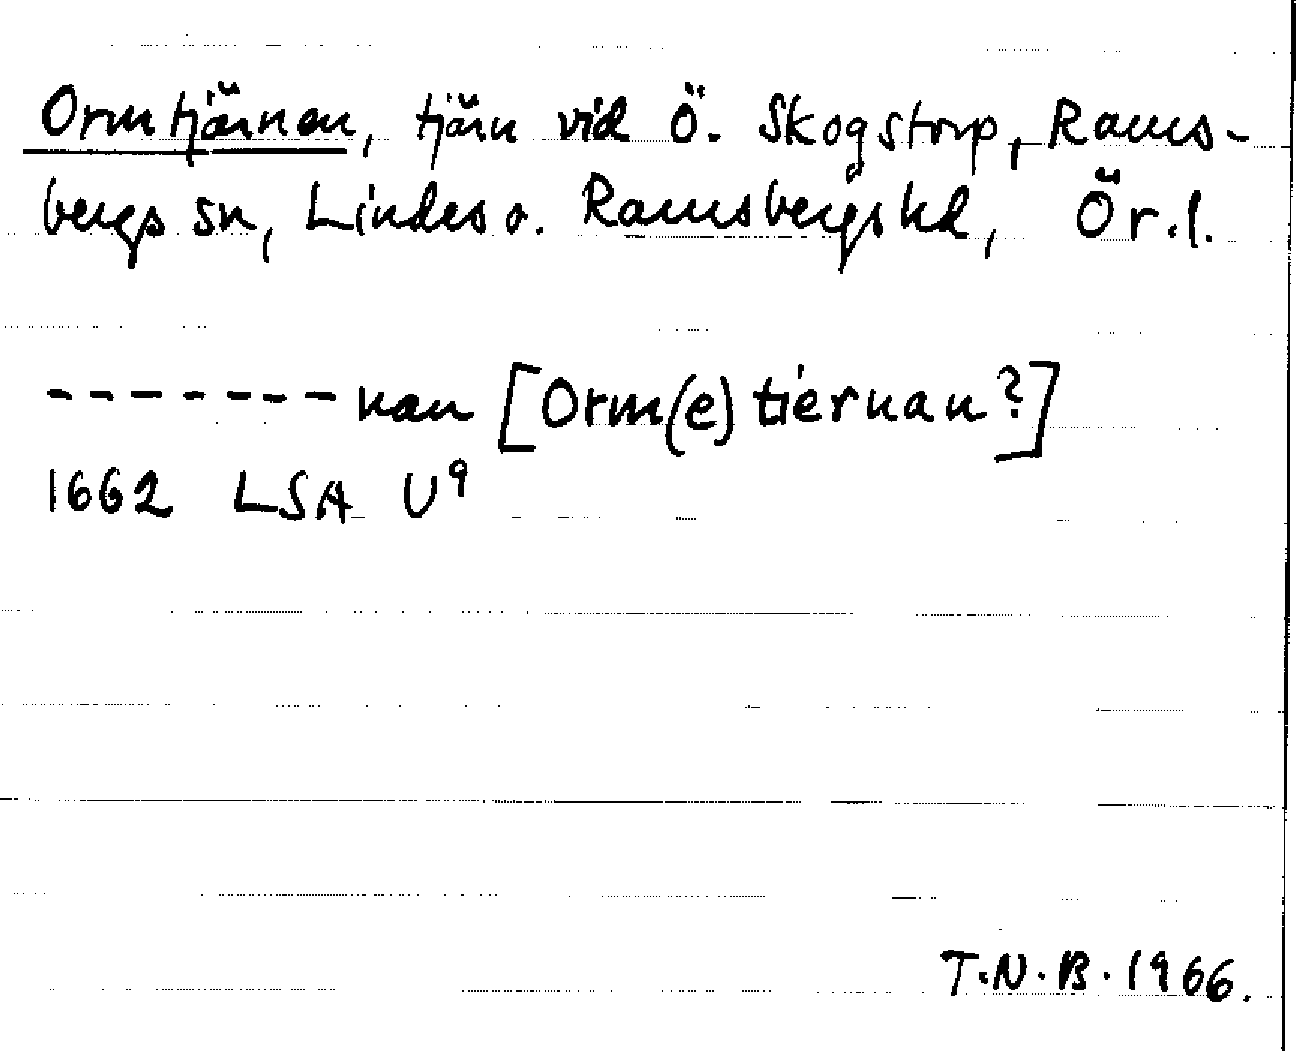 Ormtjärnen, tjärn vid Ö. Skogstorp, Rams-
bergs sn, Lindes o. Ramsbergs hd, Ör.l.
--------nan [Orm(e)tiernan?]
1662 LSA U⁹
T.N.B. 1966.